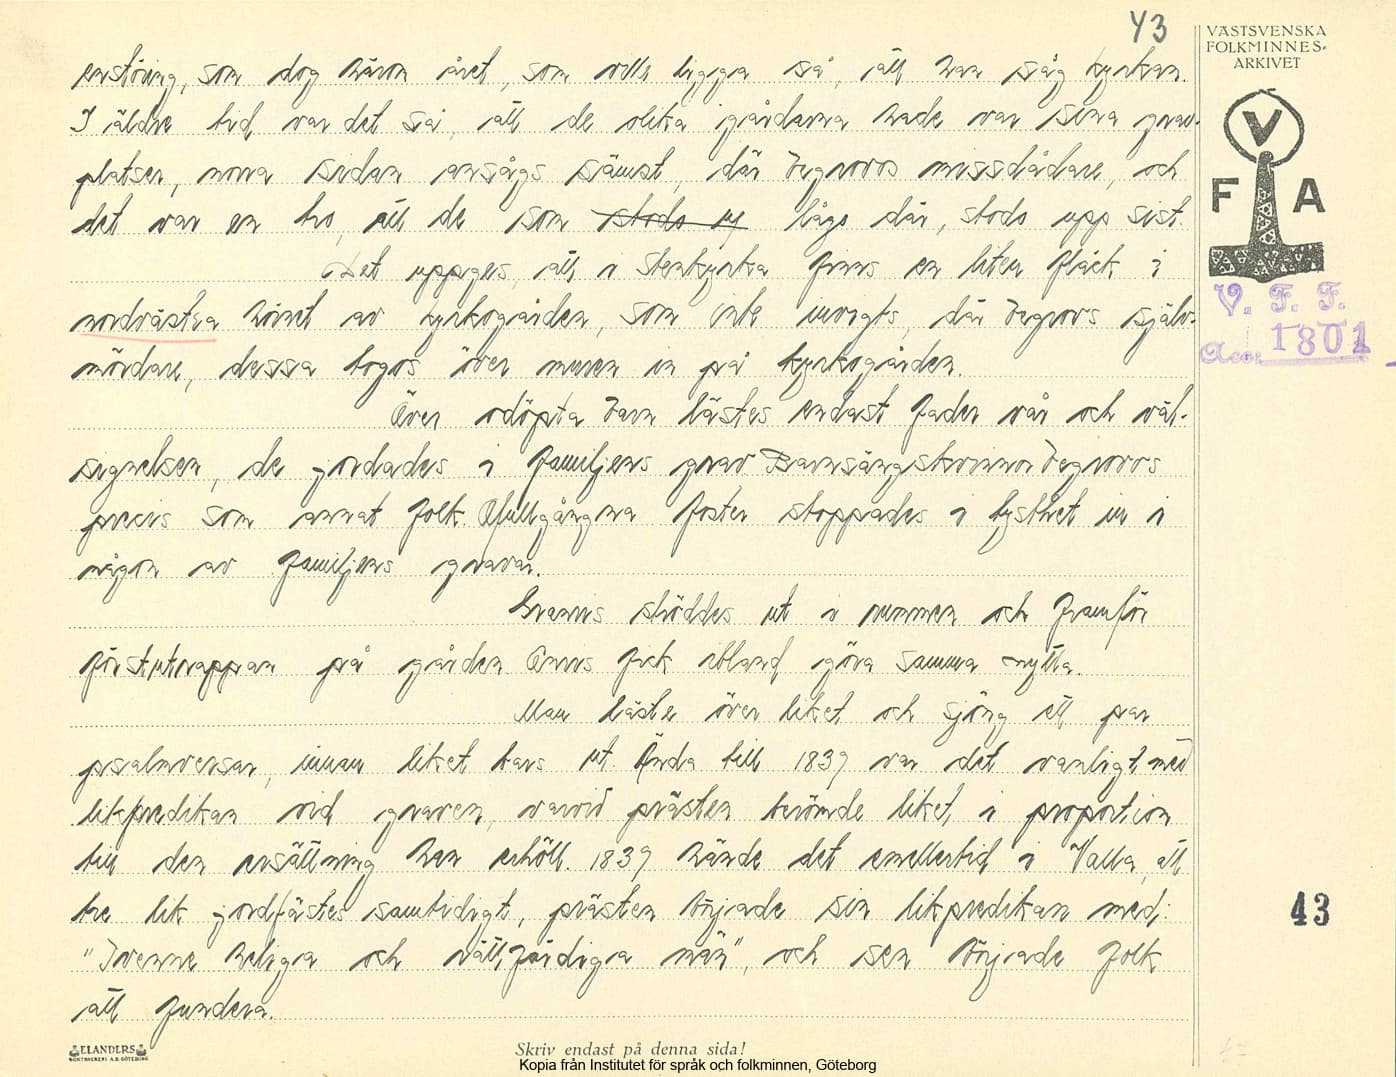 43
VÄSTSVENSKA
FOLKMINNES-
ARKIVET
enstöring, som dog häron året, som ville ligga så, att han såg kyrkan.
I äldre tid var det så, att de olika gårdarna hade var sina grav-
platser, norra sidan ansågs sämst, där begrovos missdådare, och
det var en tro, att de som stodo up lågo där, stodo upp sist.
Det uppges, att i Stenkyrka finns en liten fläck i
nordvästra hörnet av kyrkogården, som inte invigts, där begrovs själv-
mördare, dessa togos över muren in på kyrkogården.
Över odöpta barn lästes endast Fader vår och väl-
signelsen, de jordades i familjens grav Barnsängskvinnor begrovos
precis som annat folk. Ofullgångna foster stoppades i tysthet in i
någon av familjens gravar.
Granris ströddes ut i rummen och framför
förstutrappan på gården Enris fick ibland göra samma nytta.
Man läste över liket och sjöng ett par
psalmverser, innan liket bars ut. Ända till 1839 var det vanligt med
likpredikan vid graven, varvid prästen berömde liket i proportion
till den ersättning han erhöll. 1839 hände det emellertid i Valla, att
tre lik jordfästes samtidigt, prästen började sin likpredikan med:
"Tvenne heliga och rättfärdiga män", och sen började folk
att fundera.
V F A
V. F. F.
Acc. 1801
43
ELANDERS
Skriv endast på denna sida!
Kopia från Institutet för språk och folkminnen, Göteborg